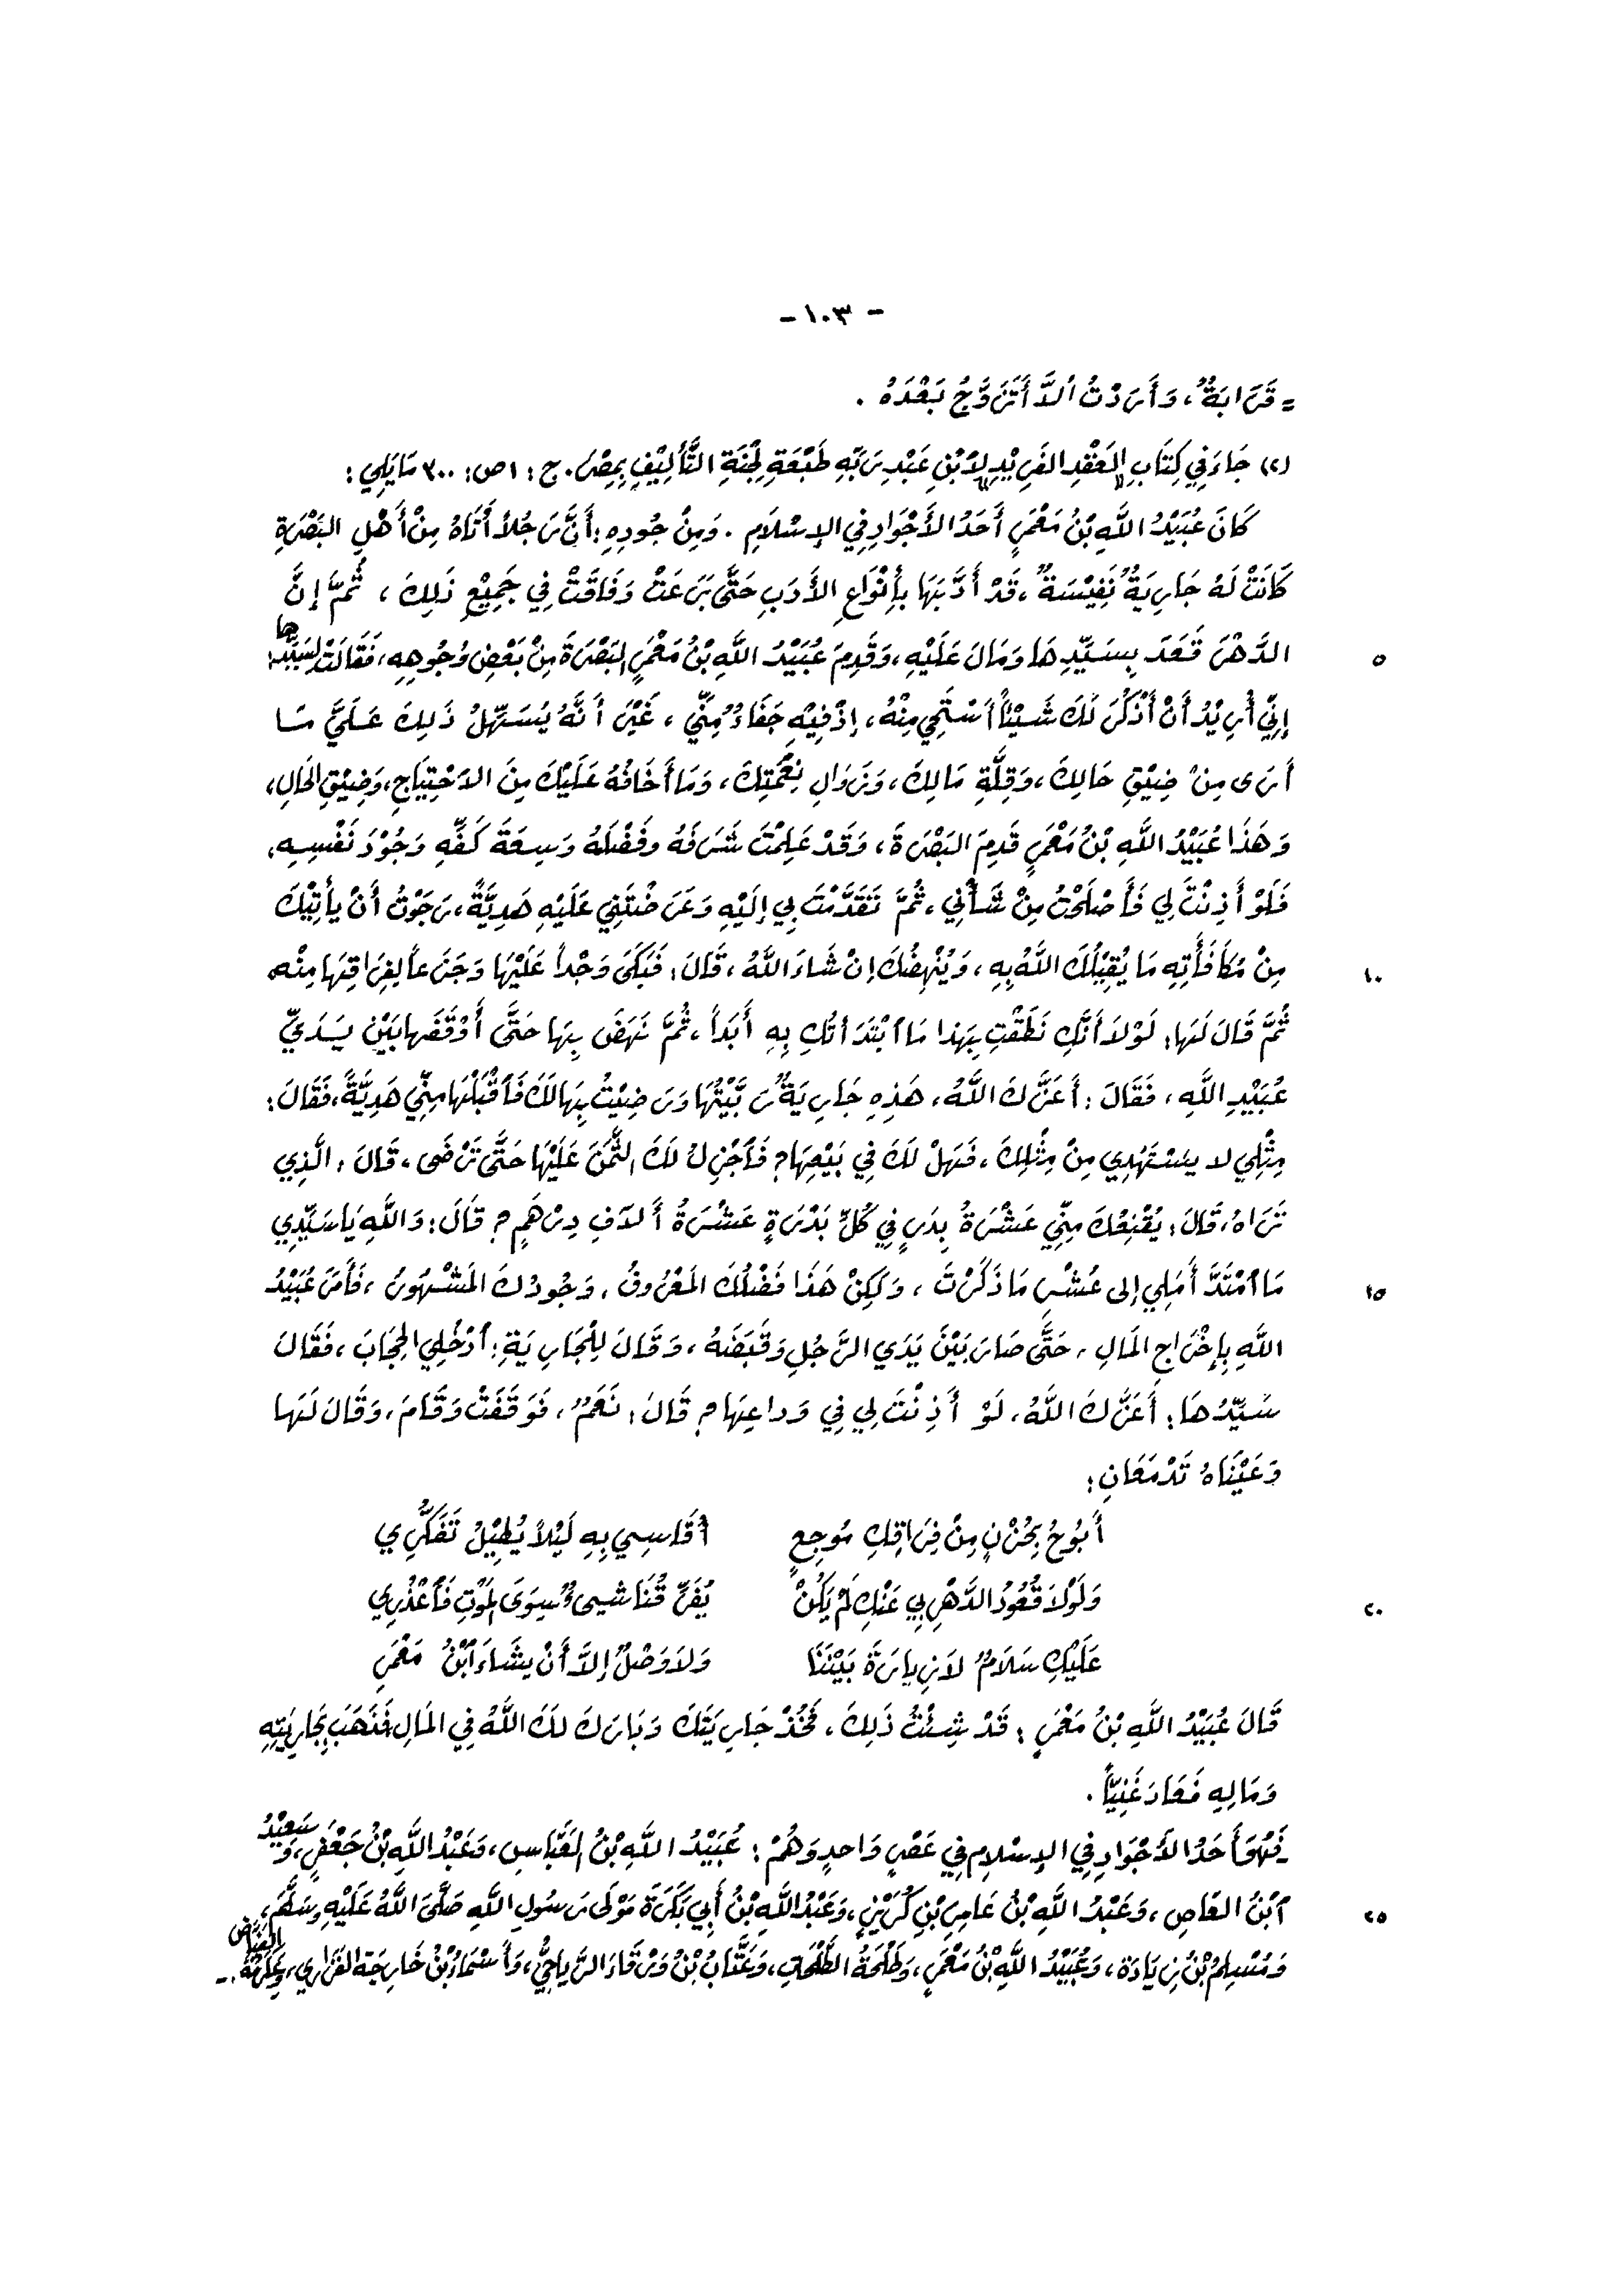 - ١٠٣ -
= قَرَابَةٌ، وَأَرَدْتُ أَلاَّ أَتَزَوَّجَ بَعْدَهُ .
(٢) جَاءَ فِي كِتَابِ العَقْدِ الفَرِيْدِ لِابْنِ عَبْدِ رَبِّهِ طَبْعَةِ لَجْنَةِ التَّأْلِيْفِ بِمِصْرَ. ج : ١ ص: ٣٠٠ مَا يَلِي :
كَانَ عُبَيْدُ اللَّهِ بْنُ مَعْمَرٍ أَحَدُ الأَجْوَادِ فِي الإِسْلَامِ . وَمِنْ جُودِهِ : أَنَّ رَجُلاً أَتَاهُ مِنْ أَهْلِ البَصْرَةِ
كَانَتْ لَهُ جَارِيَةٌ نَفِيْسَةٌ ، قَدْ أَدَّبَهَا بِأَنْوَاعِ الأَدَبِ حَتَّى بَرَعَتْ وَفَاقَتْ فِي جَمِيْعِ ذَلِكَ ، ثُمَّ إِنَّ
٥ الدَّهْرَ قَعَدَ بِسَيِّدِهَا وَمَالَ عَلَيْهِ ، وَقَدِمَ عُبَيْدُ اللَّهِ بْنُ مَعْمَرٍ البَصْرَةَ مِنْ بَعْضِ وُجُوهِهِ ، فَقَالَتْ لِسَيِّدِهَا
إِنِّي أُرِيْدُ أَنْ أَذْكُرَ لَكَ شَيْئاً أَسْتَحِي مِنْهُ ، إِذْ فِيْهِ جَفَاءٌ مِنِّي ، غَيْرَ أَنَّهُ يُسَهِّلُ ذَلِكَ عَلَيَّ مَا
أَرَى مِنْ ضِيْقِ حَالِكَ ، وَقِلَّةِ مَالِكَ ، وَزَوَالِ نِعْمَتِكَ ، وَمَا أَخَافُهُ عَلَيْكَ مِنَ الاحْتِيَاجِ ، وَضِيْقِ الحَالِ ،
وَهَذَا عُبَيْدُ اللَّهِ بْنُ مَعْمَرٍ قَدِمَ البَصْرَةَ ، وَقَدْ عَلِمْتَ شَرَفَهُ وفَضْلَهُ وَسِعَةَ كَفِّهِ وَجُوْدَ نَفْسِهِ ،
فَلَوْ أَذِنْتَ لِي فَأَصْلَحْتُ مِنْ شَأْنِي ، ثُمَّ تَقَدَّمْتَ بِي إِلَيْهِ وَعَرَضْتَنِي عَلَيْهِ هَدِيَّةً ، رَجَوْتُ أَنْ يأْتِيْكَ
١٠ مِنْ مُكَافَأَتِهِ مَا يُقِيْلُكَ اللَّهُ بِهِ ، وَيُنْهِضُكَ إِنْ شَاءَ اللَّهُ ، قَالَ : فَبَكَى وَجْداً عَلَيْهَا وَجَزَعاً لِفِرَاقِهَا مِنْهِ
ثُمَّ قَالَ لَهَا : لَوْلاَ أَنَّكِ نَطَقْتِ بِهَذا مَا ابْتَدَأْتُكِ بِهِ أَبَداً ، ثُمَّ نَهَضَ بِهَا حَتَّى أَوْقَفَها بَيْنَ يَدَيّ
عُبَيْدِ اللَّهِ ، فَقَالَ : أَعَزَّكَ اللَّهُ ، هَذِهِ جَارِيَةٌ رَبَّيْتُهَا وَرَضِيْتُ بِهَا لَكَ فَاقْبَلْهَا مِنِّي هَدِيَّةً ، فَقَالَ :
مِثْلِي لا يسْتَهْدِي مِنْ مِثْلِكَ ، فَهَلْ لَكَ فِي بَيْعِهَا ؟ فَأُجْزِلُ لَكَ الثَّمَنَ عَلَيْهَا حَتَّى تَرْضَى ، قَالَ : الَّذِي
تَرَاهُ ، قَالَ : يُقْنِعُكَ مِنِّي عَشْرَةُ بِدَرٍ فِي كُلِّ بَدْرَةٍ عَشْرَةُ أَلاَفِ دِرْهَمٍ ؟ قَالَ : وَاللَّهِ يَا سَيِّدِي
١٥ مَا امْتَدَّ أَمَلِي إلى عُشْرِ مَا ذَكَرْتَ ، وَلَكِنْ هَذَا فَضْلُكَ المَعْرُوفُ ، وَجُودُكَ المَشْهُورُ ، فَأَمَرَ عُبَيْدُ
اللَّهِ بِإِخْرَاجِ المَالِ ، حَتَّى صَارَ بَيْنَ يَدَي الرَّجُلِ وَقَبَضَهُ ، وَقَالَ لِلْجَارِيَةِ : ادْخُلِي الحِجَابَ ، فَقَالَ
سَيِّدُهَا : أَعَزَّكَ اللَّهُ ، لَوْ أَذِنْتَ لِي فِي وَداعِهَا ؟ قَالَ : نَعَمْ ، فَوَقَفَتْ وَقَامَ ، وَقَالَ لَهَا
وَعَيْنَاهُ تَدْمَعَانِ :
أَبُوحُ بِحُزْنٍ مِنْ فِرَاقِكِ مُوجِعٍ أُقَاسِي بِهِ لَيْلاً يُطِيْلُ تَفَكُّرِي
٢٠ وَلَوْلاَ قُعُودُ الدَّهْرِ بِي عَنْكِ لَمْ يَكُنْ يُفَرِّقُنَا شيىءٌ سِوَى المَوْتِ فَاعْذُرِي
عَلَيْكِ سَلاَمٌ لاَ زِيارَةَ بَيْنَنَا وَلاَ وَصْلَ إلاَّ أَنْ يشَاءَ ابْنُ مَعْمَرِ
قَالَ عُبَيْدُ اللَّهِ بْنُ مَعْمَرٍ : قَدْ شِئْتُ ذَلِكَ ، فَخُذْ جَارِيَتَكَ وَبَارَكَ لَكَ اللَّهُ فِي المَالِ فَذَهَبَ بِجَارِيَتِهِ
وَمَالِهِ فَعَادَ غَنِيّاً .
فَهُوَ أَحَدُ الأَجْوَادِ فِي الإِسْلامِ فِي عَصْرٍ وَاحدٍ وَهُمْ : عُبَيْدُ اللَّهِ بْنُ العَبَّاسِ ، وَعَبْدُ اللَّهِ بْنُ جَعْفَرٍ ، وَسَعِيْدُ
٢٥ ابْنُ العَاصِ ، وَعَبْدُ اللَّهِ بْنُ عَامِرِ بْنِ كُرَيْزٍ ، وَعَبْدُ اللَّهِ بْنُ أَبِي بَكَرَةَ مَوْلَى رَسُولِ اللَّهِ صَلَّى اللَّهُ عَلَيْهِ وسَلَّمَ ،
وَمُسْلِمُ بْنُ زِيَادَة ، وَعُبَيْدُ اللَّهِ بْنُ مَعْمَرٍ ، وَطَلْحَةُ الطَّلَحَاتِ ، وَعَتَّابُ بْنُ وَرْقَاءَ الرِّياحِيُّ ، وَأَسْمَاءُ بْنُ خَارِجَةَ الفَزَارِي ، وَعِكْرِمَةُ الفَيَّاضِ . -